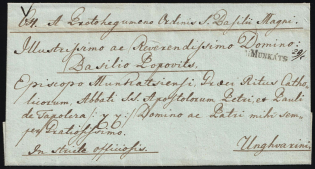 Ex. A Protohegumeno Ordinis S. Basilii Magni.
Illustrissimo ac Reverendissimo Domino:
MUNKÁTS
Basilio Popovits.
Episcopo Munkatsiensi Graeci Ritus Catho-
licorum, Abbati SS. Apostolorum Petri, et Pauli
de Tapolcza /: y y :/ Domino ac Patri mihi sem-
per Gratiosissimo.
In stricte officiosis.
Unghvarini